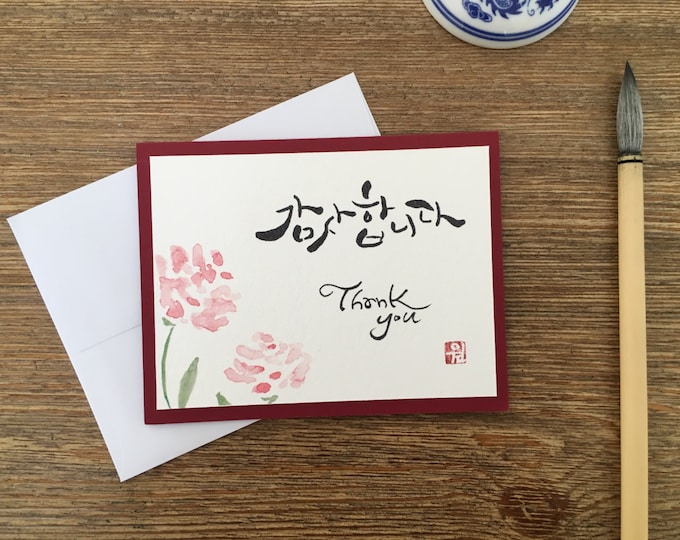 감사합니다
Thank
you